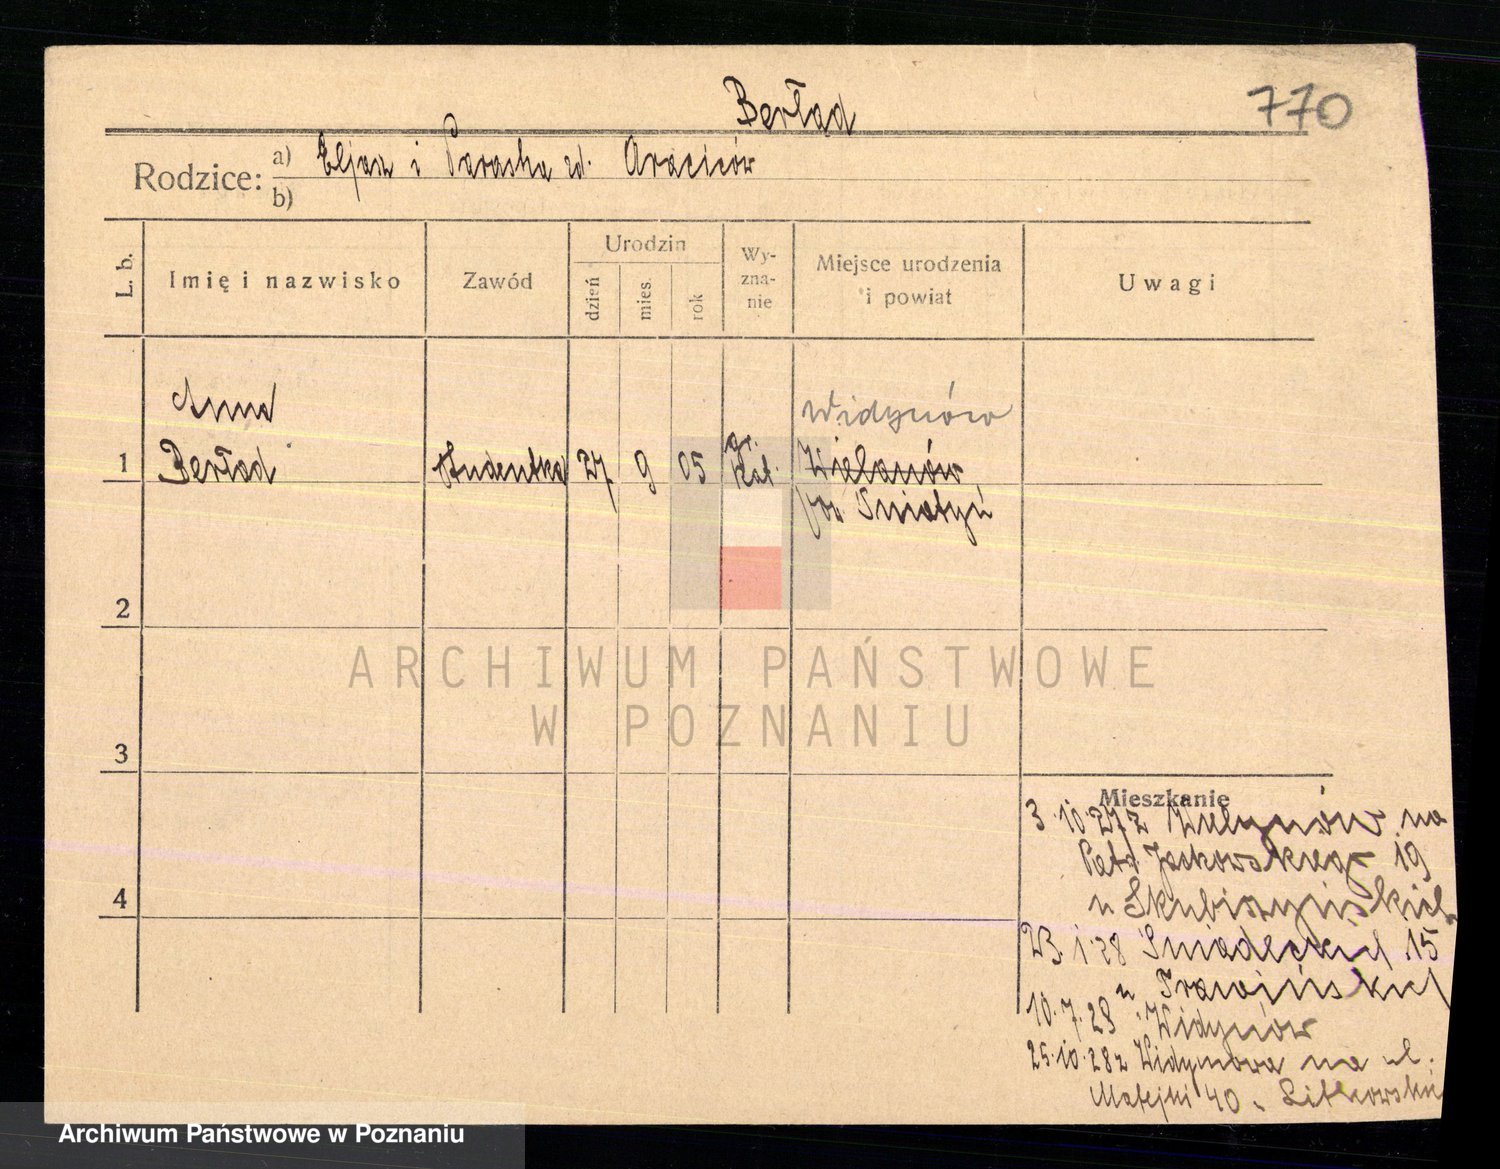 Berłąd
770
Rodzice: a) Eljasz i Paraska zd. Araciców
b)
L. b.
Imię i nazwisko
Zawód
Urodzin
dzień
mies.
rok
Wy-
zna-
nie
Miejsce urodzenia
i powiat
Uwagi
Anna
Widynów
gr.
1 Berłąd Studentka 27 9 05 kat. Wielanów
pow. Śniatyń
2
ARCHIWUM PAŃSTWOWE
W POZNANIU
3
Mieszkanie
3.10.27 z na
Jackowskiego 19
u
4
23.1.28 Śniadeckich 15
u
10.7.28 Widynów
25.10.28 z Widynowa na ul.
Matejki 40 u
Archiwum Państwowe w Poznaniu